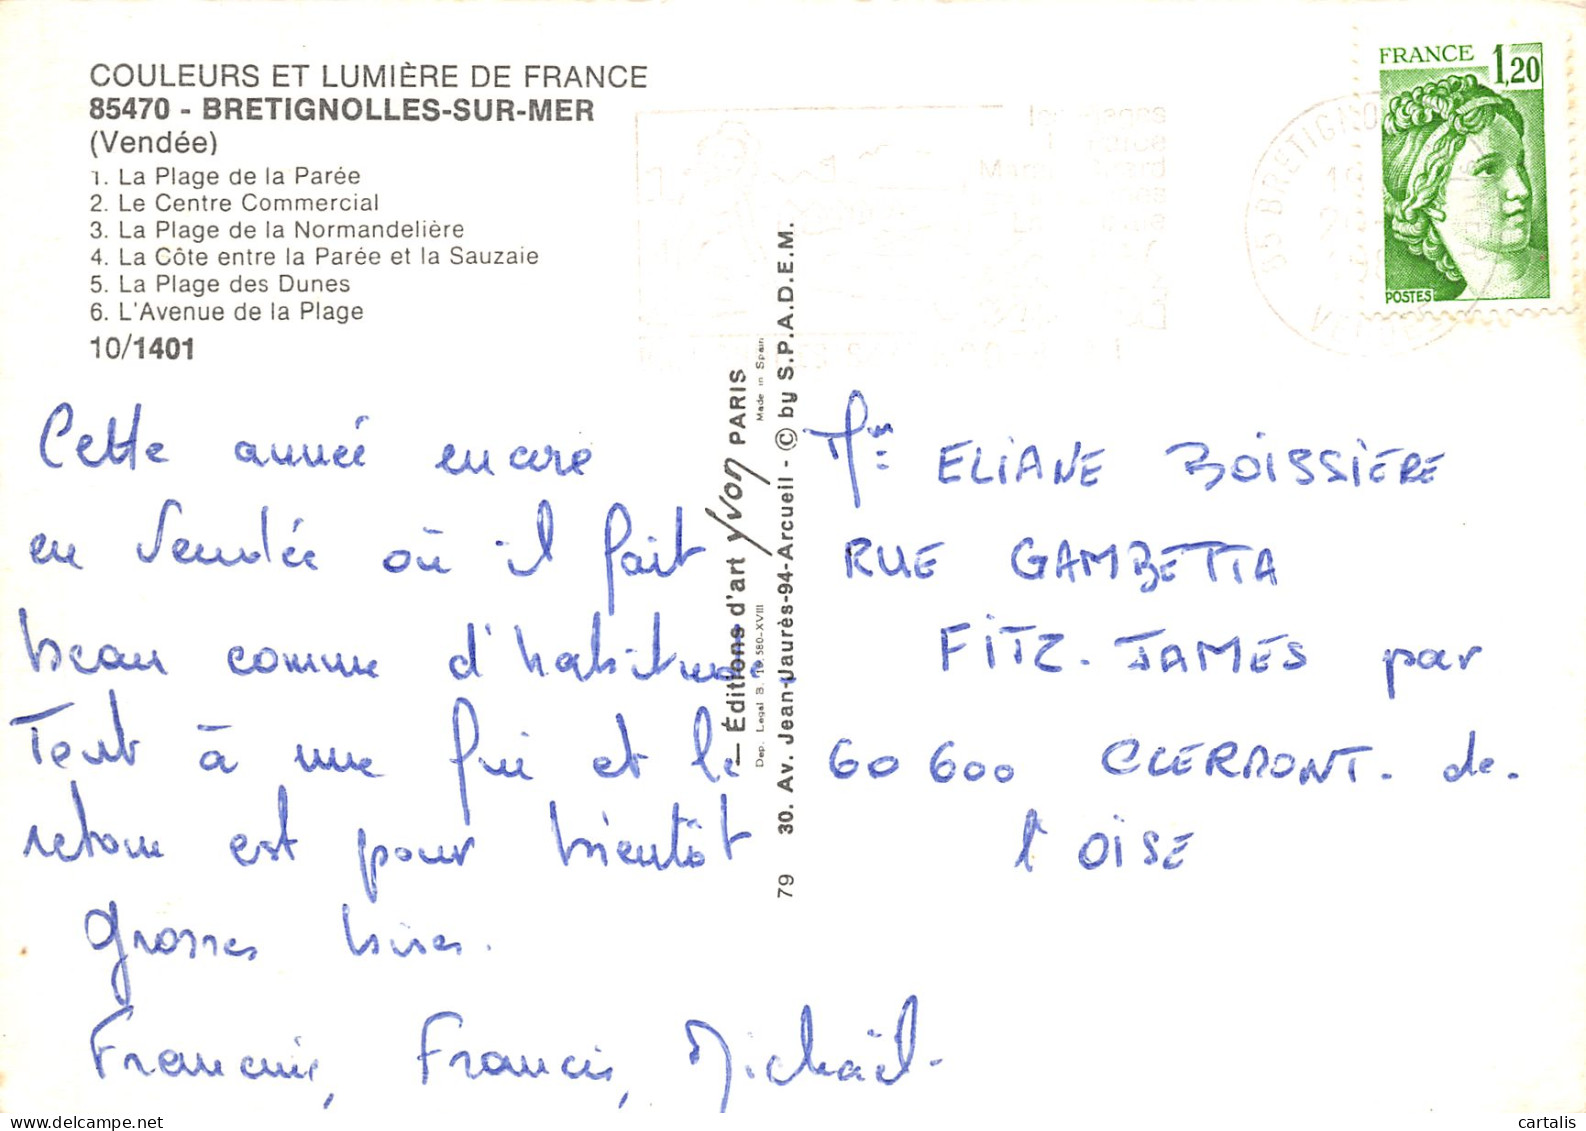 COULEURS ET LUMIÈRE DE FRANCE
85470 - BRETIGNOLLES-SUR-MER
(Vendée)
1. La Plage de la Parée
2. Le Centre Commercial
3. La Plage de la Normandelière
4. La Côte entre la Parée et la Sauzaie
5. La Plage des Dunes
6. L'Avenue de la Plage
10/1401
Cette année encore
en Vendée où il fait
beau comme d'habitude.
Tout à une fin et le
retour est pour bientôt
Grosses bises.
Francine, Francis, Michaël.
— Éditions d'art yvon PARIS
Dep. Legal B. 19.580-XVIII Made in Spain
79 30. Av. Jean-Jaurès-94-Arcueil - © by S.P.A.D.E.M.
FRANCE 1,20
POSTES
85 BRETIGNO
Mme ELIANE BOISSIERE
RUE GAMBETTA
FITZ-JAMES par
60600 CLERMONT. de.
l'OISE
cartalis